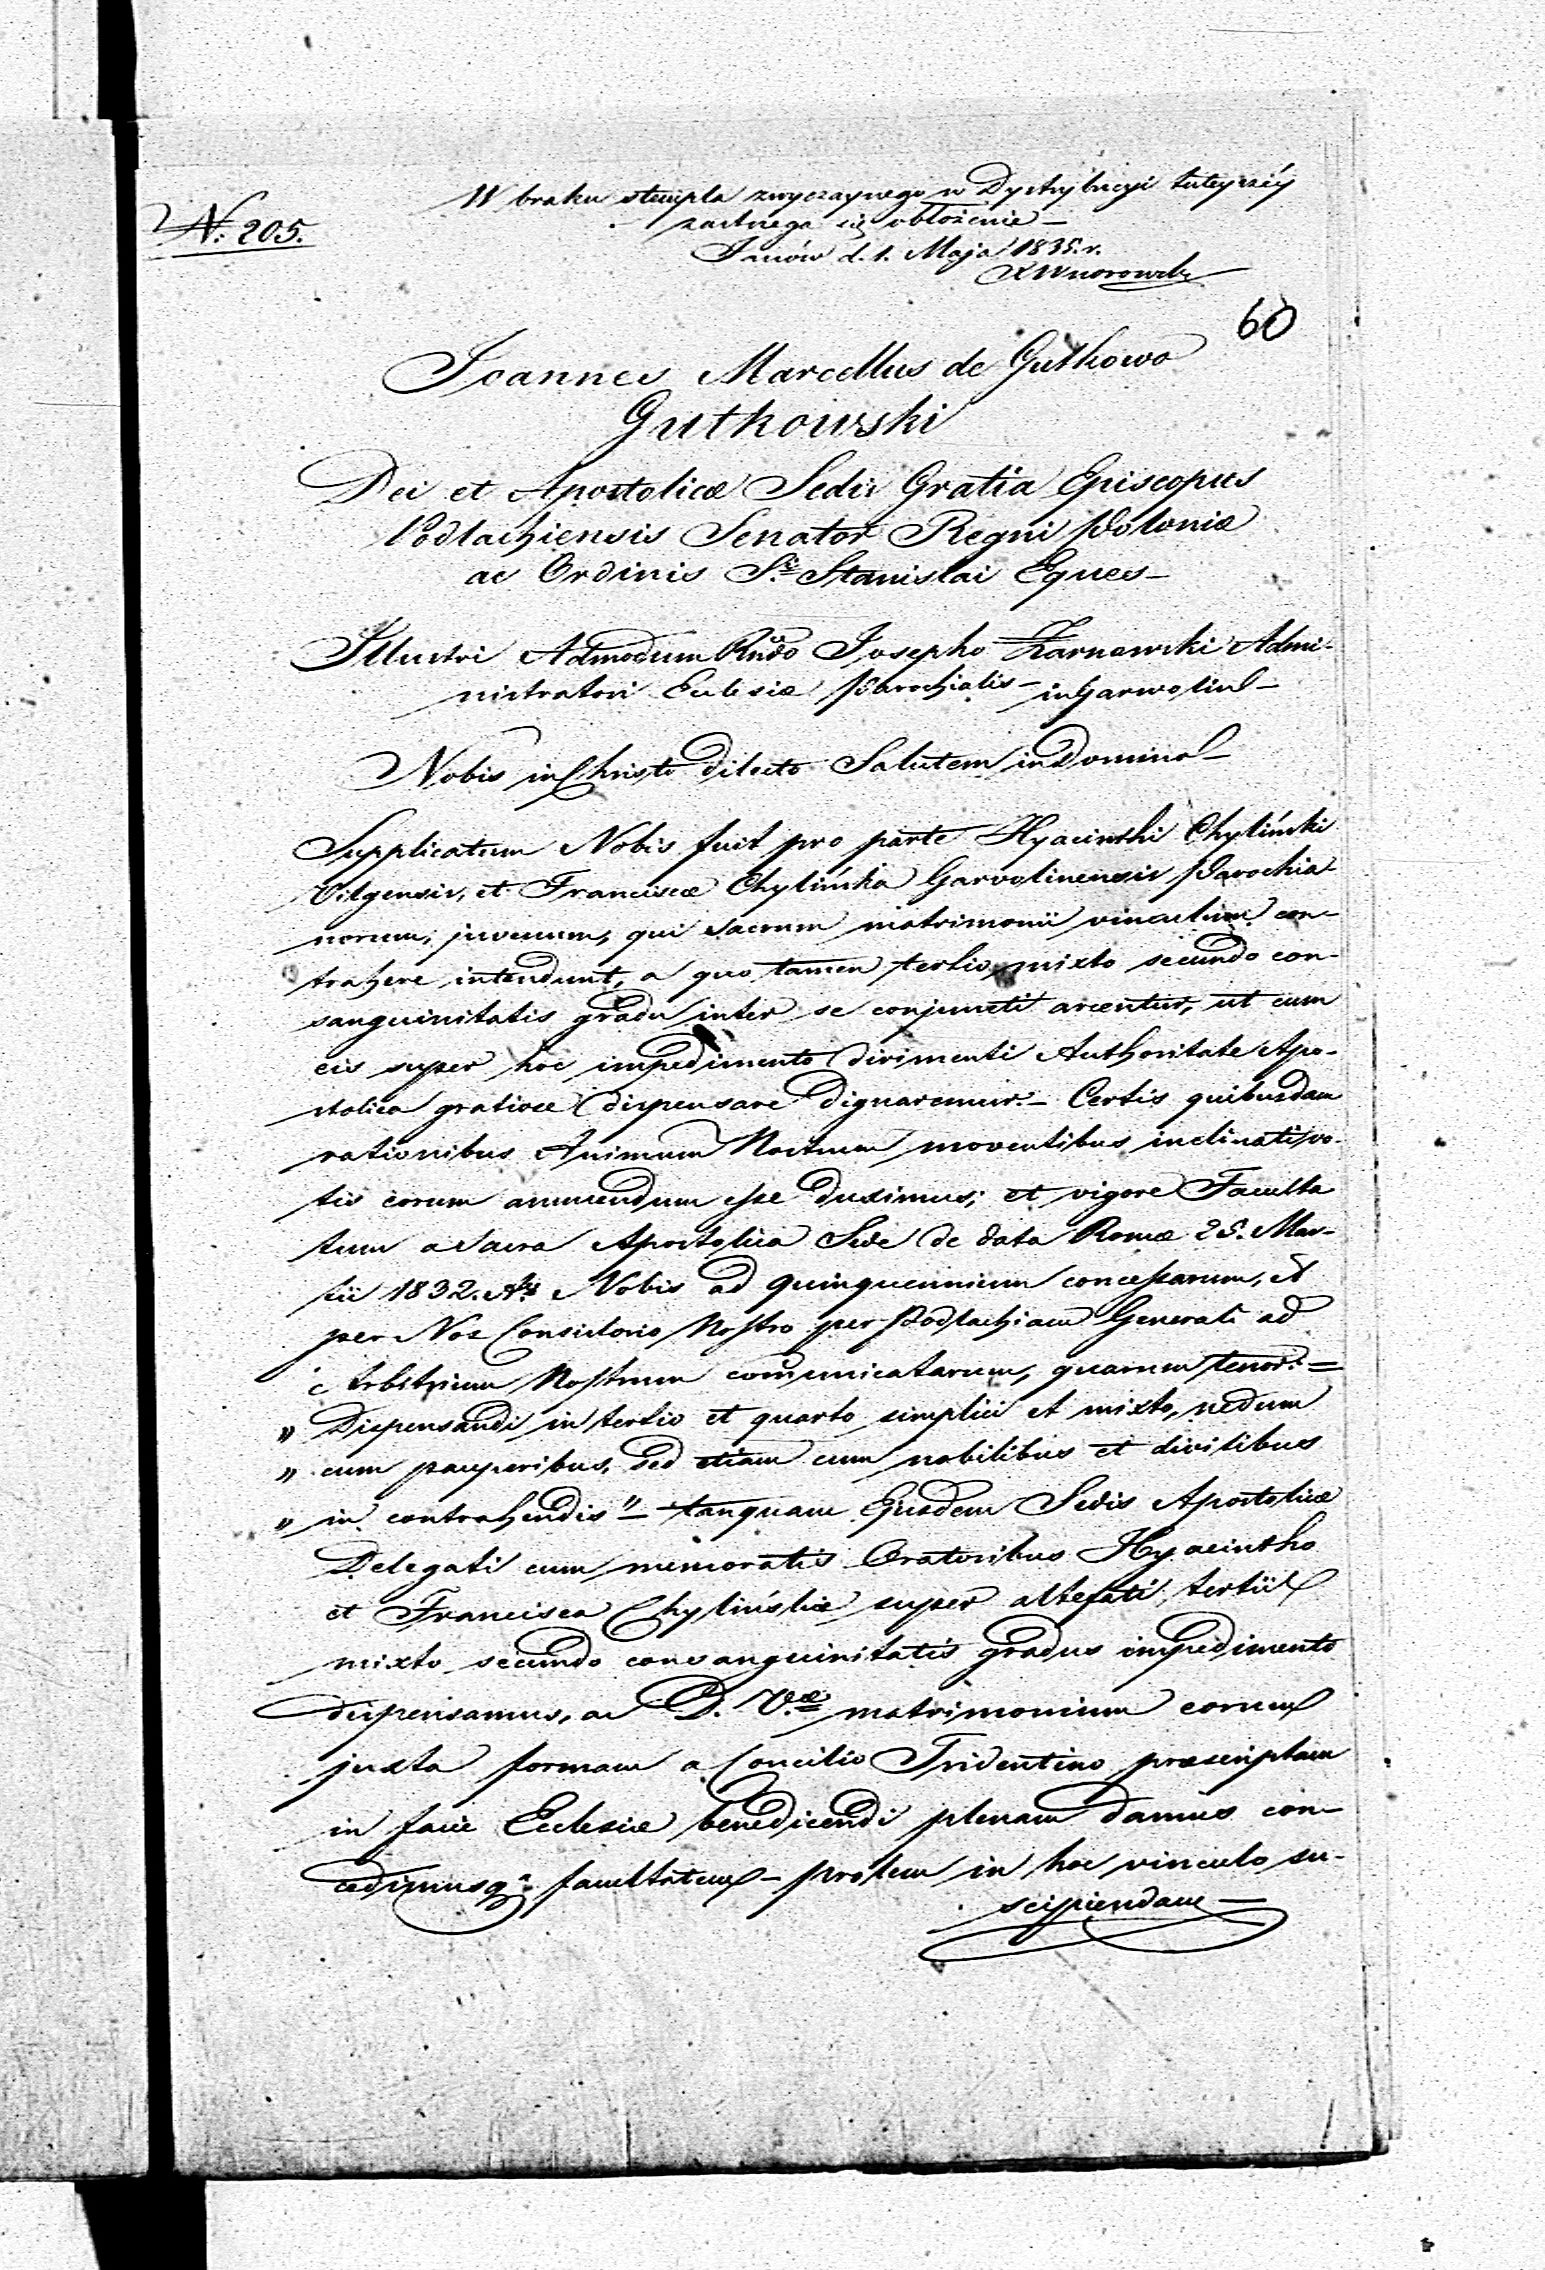 N. 205.
W braku stempla zwyczaynego w Dystrybucyi tuteyszéy
zastrzega się obłożenie –
Janów d. 1. Maja 1835. r.
60
Joannes Marcellus de Gutkowo
Gutkowski
Dei et Apostolicæ Sedis Gratia Episcopus
Podlachiensis Senator Regni Poloniæ
ac Ordinis S.ti Stanislai Eques –
Illustri Admodum Rndo Josepho Żarnowski Admi-
nistratori Eclesiæ Parochialis – in Garwolin –
Nobis in Christo dilecto Salutem in Domino –
Supplicatum Nobis fuit pro parte Hyacinthi Chyliński
Vilgensis, et Franciscæ Chylińska Garvolinensis Parochia
norum, juvenum, qui sacrum matrimonii vinculum con-
trahere intendunt, a quo tamen tertio mixto secundo con-
sanguinitatis gradu inter se conjuncti arcentur, ut cum
eis super hoc impedimento dirimenti Authoritate Apo-
stolica gratiose dispensare dignaremur. – Certis quibusdam
rationibus Animum Nostrum moventibus inclinati vo-
tis eorum annuendum esse duximus; et vigore Faculta
tum a Sacra Apostolica Sede de data Romæ 25. Mar-
tii 1832. Nobis ad quinquennium concessarum, et
per Nos Consistorio Nostro per Podlachiam Generali ad
Arbitrium Nostrum comunicatarum, quarum tenor. =
" Dispensandi in tertio et quarto simplici et mixto, nedum
" cum pauperibus, sed etiam cum nobilibus et divitibus
" in contrahendis " – tanquam Ejusdem Sedis Apostolicæ
Delegati cum memoratis Oratoribus Hyacintho
et Francisca Chylińskie super altefati tertii
mixto secundo consanguinitatis gradus impedimento
dispensamus, ac D. V.æ matrimonium eorum
juxta formam a Concilio Tridentino præscriptam
in facie Ecclesiæ benedicendi plenam damus con-
cedimusq. facultatem – prolem in hoc vinculo su-
scipiendam –